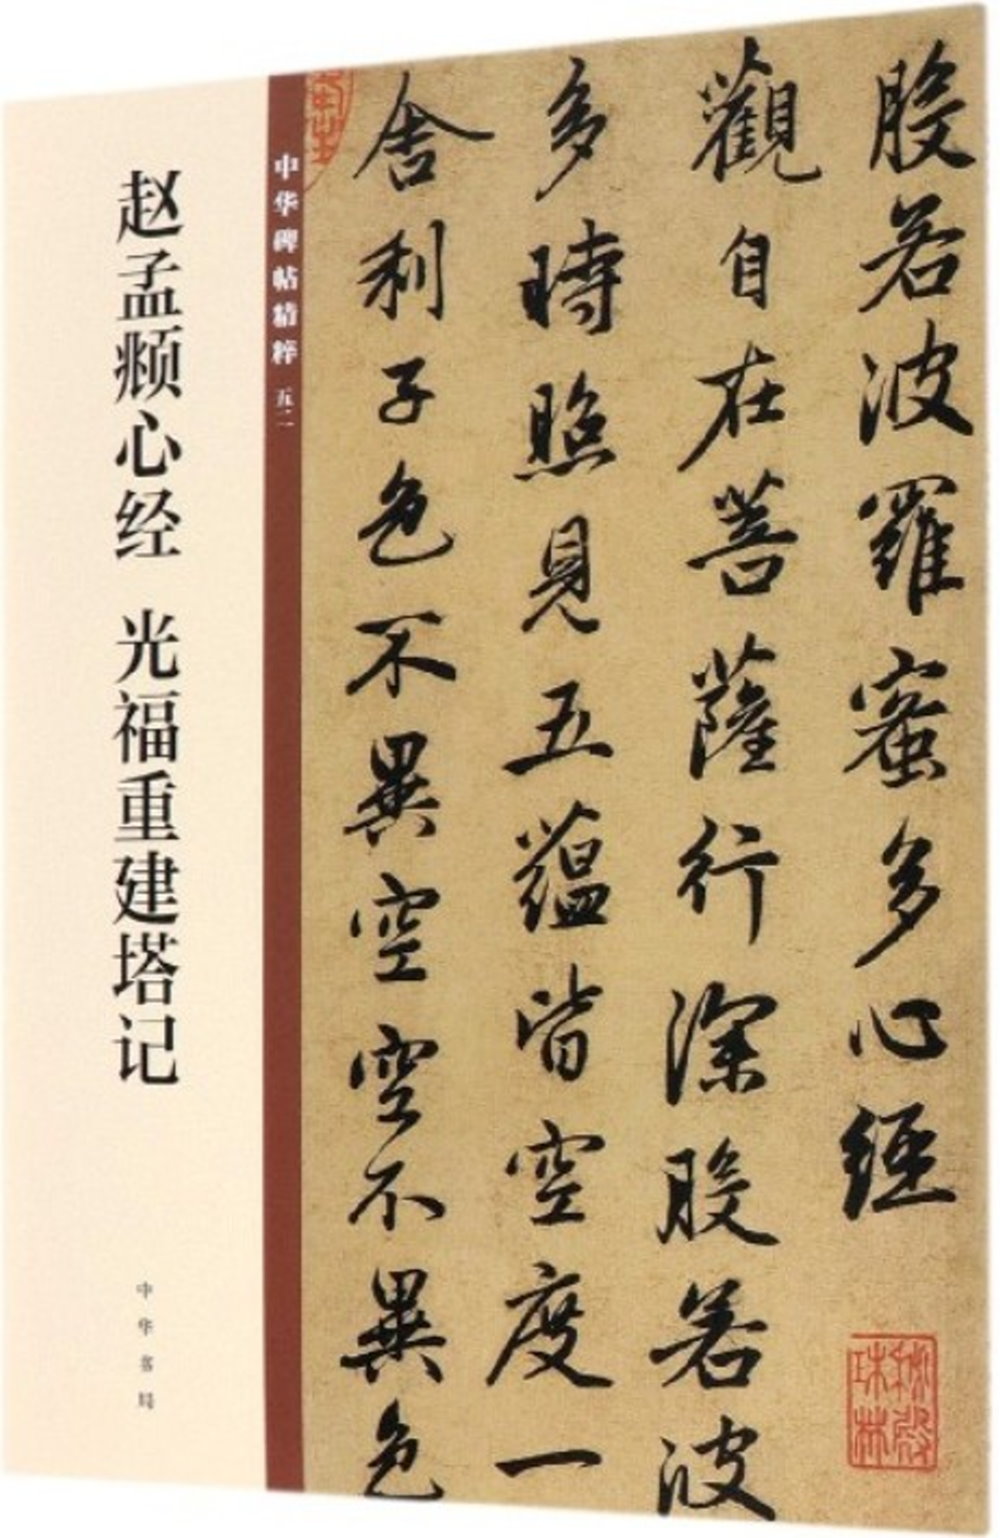 赵孟頫心经 光福重建塔记
中华书局
中华碑帖精粹 五二
般若波羅蜜多心經
觀自在菩薩行深般若波
多時照見五蘊皆空度一
舍利子色不異空空不異色
秘殿珠林